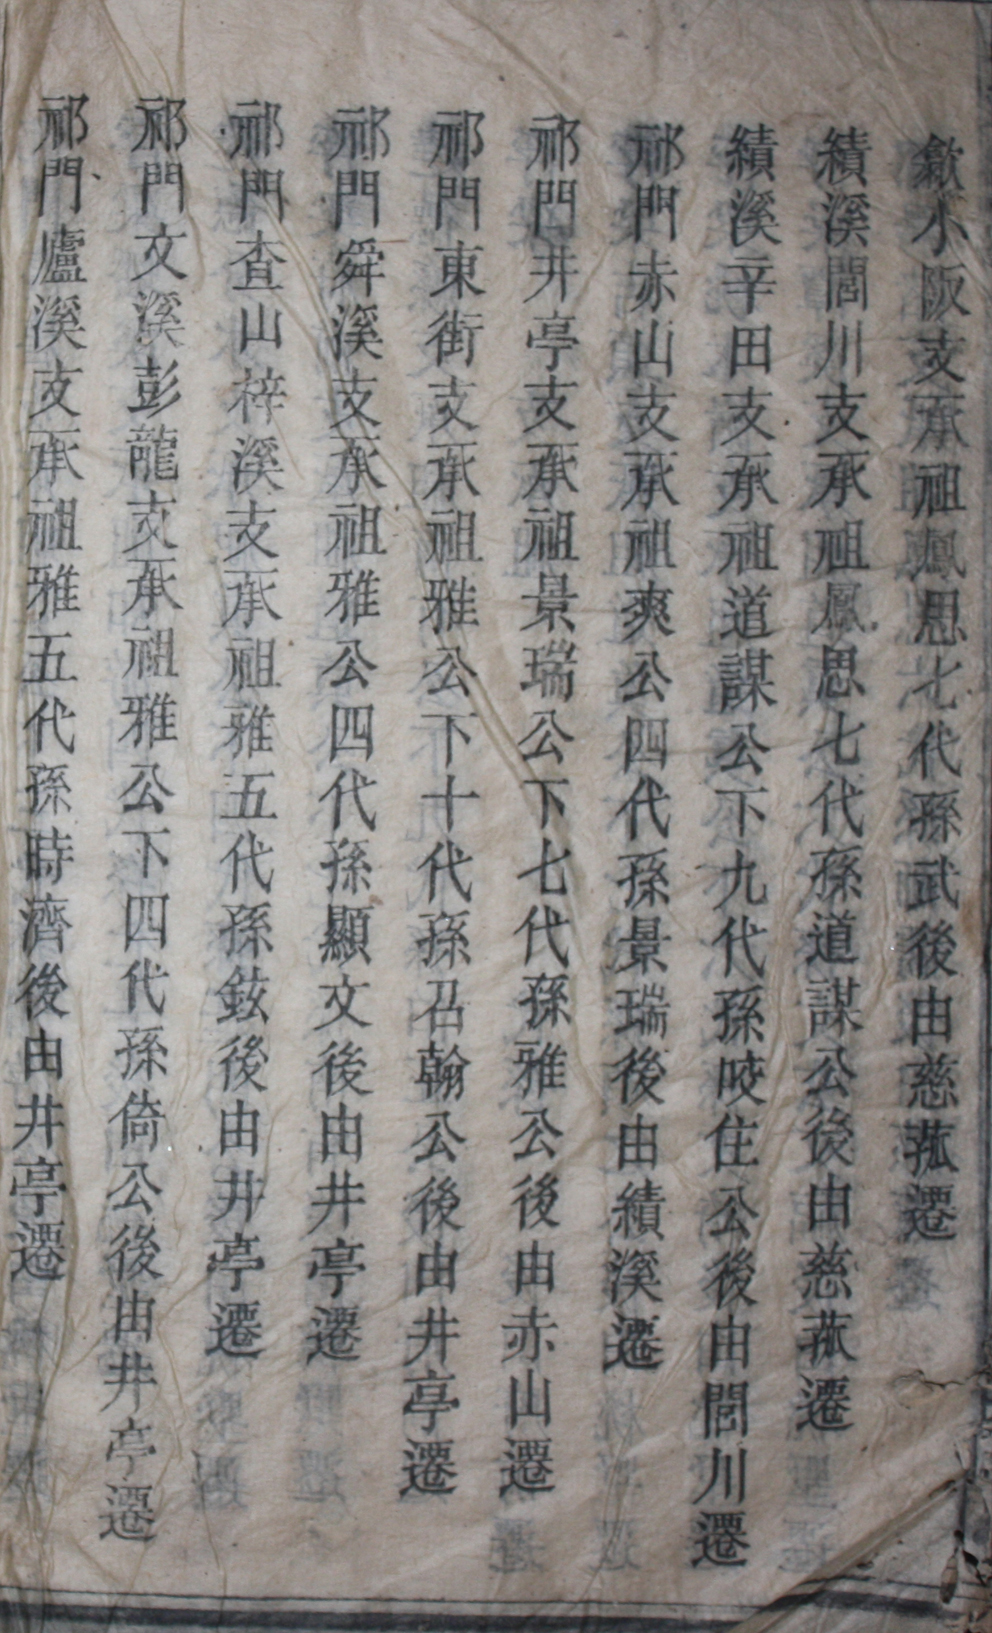 歙小阪支承祖鳳思七代孫武後由慈菰遷
績溪閭川支承祖鳳思七代孫道謀公後由慈菰遷
績溪辛田支承祖道謀公下九代孫咬住公後由閭川遷
祁門赤山支承祖爽公四代孫景瑞後由績溪遷
祁門井亭支承祖景瑞公下七代孫雅公後由赤山遷
祁門東街支承祖雅公下十代孫召翰公後由井亭遷
祁門舜溪支承祖雅公四代孫顯文後由井亭遷
祁門查山梓溪支承祖雅五代孫鉉後由井亭遷
祁門文溪彭龍支承祖雅公下四代孫倚公後由井亭遷
祁門廬溪支承祖雅五代孫時濟後由井亭遷